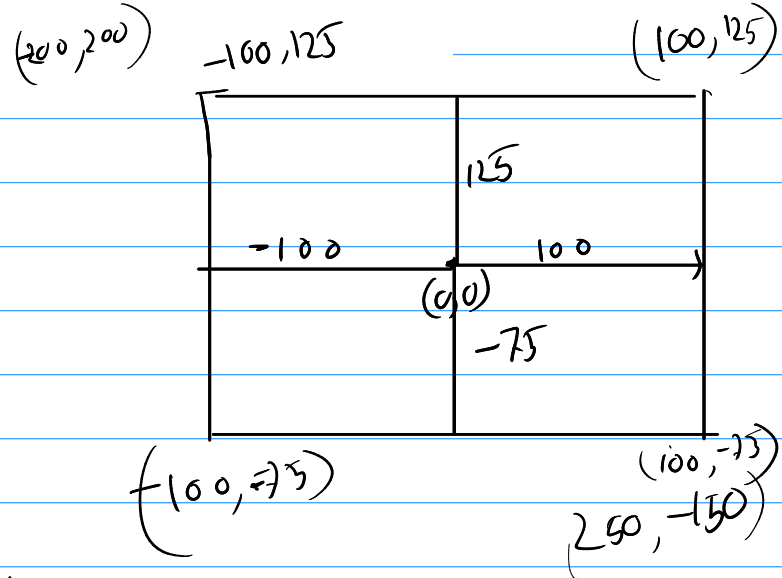 (-200,200) -100,125 (100,125)
125
-100 100
(0,0)
-75
(-100,-75) (100,-75)
(250,-150)